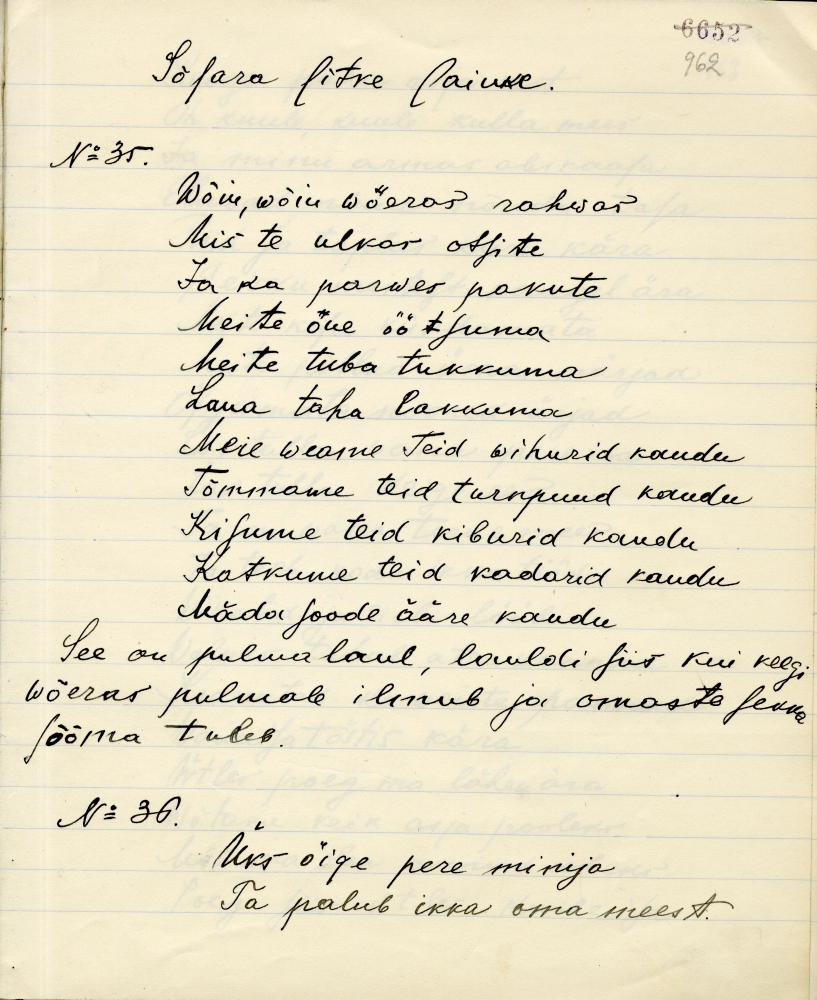 6652
962
Sõsara sitke saiuke.
No 35.
Wõin, wõin wõeras rahwas
Mis te ulkas otsite
Ja ka parwes pakute
Meite õue öötsuma
Meite tuba tukkuma
Laua taha lakkuma
Meie weame Teid wihurid kaudu
Tõmmame teid turnpuud kaudu
Kisume teid kiburid kaudu
Katkume teid kadarid kaudu
Mäda soode ääre kaudu
See on pulmalaul, lauldi siis kui keegi
wõeras pulmale ilmub ja omaste sekka
sööma tuleb.
No 36.
Üks õige pere minija
Ta palub ikka oma meest.